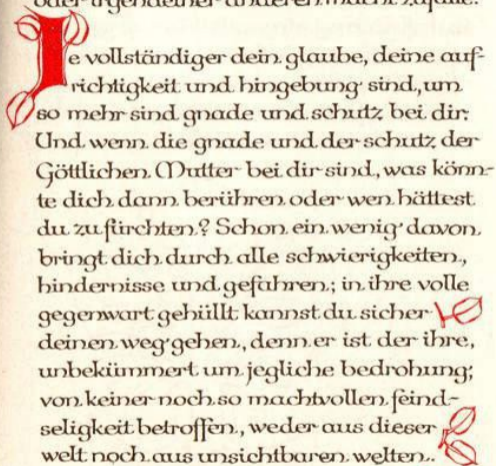 oder irgendeiner anderen macht zuteile.
Je vollständiger dein glaube, deine auf-
richtigkeit und hingebung sind, um
so mehr sind gnade und schutz bei dir.
Und wenn die gnade und der schutz der
Göttlichen Mutter bei dir sind, was könn-
te dich dann berühren oder wen hättest
du zu fürchten? Schon ein wenig davon
bringt dich durch alle schwierigkeiten,
hindernisse und gefahren; in ihre volle
gegenwart gehüllt kannst du sicher
deinen weg gehen, denn er ist der ihre,
unbekümmert um jegliche bedrohung;
von keiner noch so machtvollen feind-
seligkeit betroffen, weder aus dieser
welt noch aus unsichtbaren welten.